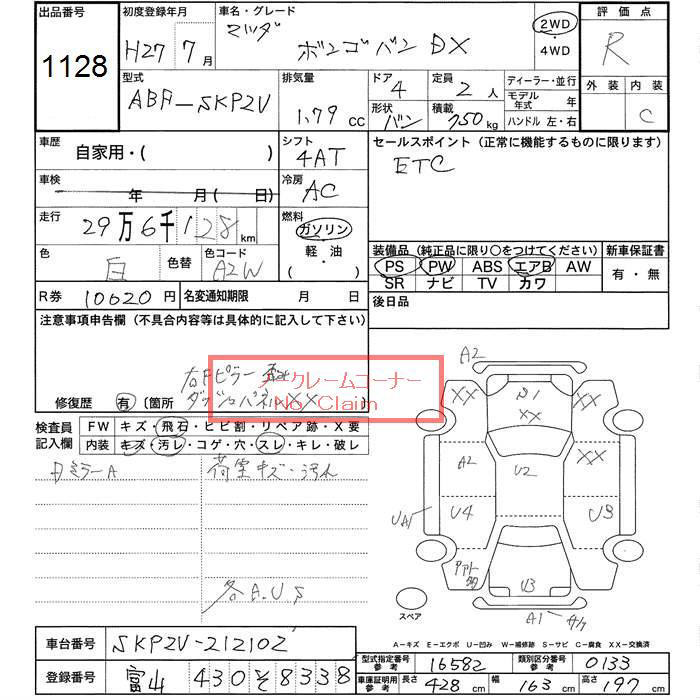 出品番号 初度登録年月 車名・グレード 評価点
1128 H27 7月 マツダ ボンゴバン DX 2WD ・ 4WD R
型式 排気量 ドア 定員 ディーラー・並行 外装 内装
ABF-SKP2V 1.79 cc 4 2人 モデル年式 年 C
形状 積載
バン 750kg ハンドル 左・右
車歴 シフト セールスポイント（正常に機能するものに限ります）
自家用・( ) 4AT ETC
車検 冷房
年 月 ( 日) AC
走行 燃料
29万6千128km ガソリン ・ 軽・油 ・ ( )
色 色替 色コード 装備品（純正品に限り○をつけてください） 新車保証書
白 A2W PS PW ABS エアB AW 有・無
SR ナビ TV カワ
R券 10620円 名変通知期限 月 日 後日品
注意事項申告欄（不具合内容等は具体的に記入して下さい）
右Fピラー
ノークレームコーナー
No Claim
修復歴 有 〔箇所 ダッシュパネルXX
検査員記入欄 FW キズ・飛石・ヒビ割・リペア跡・X要
内装 キズ・汚レ・コゲ・穴・スレ・キレ・破レ
荷室キズ・汚れ
ミラーA
各A.U.S
A2
XX XX
S1
XX
A2 U2 XX
UA1 U4 U3
U3
A1 サケ
スペア
A-キズ E-エクボ U-凹み W-補修跡 S-サビ C-腐食 XX-交換済
車台番号 SKP2V-212102
型式指定番号 参考 16582 類別区分番号 参考 0133
登録番号 富山 430 そ 8338
車庫証明用 参考 長さ 428cm 幅 163cm 高さ 197cm